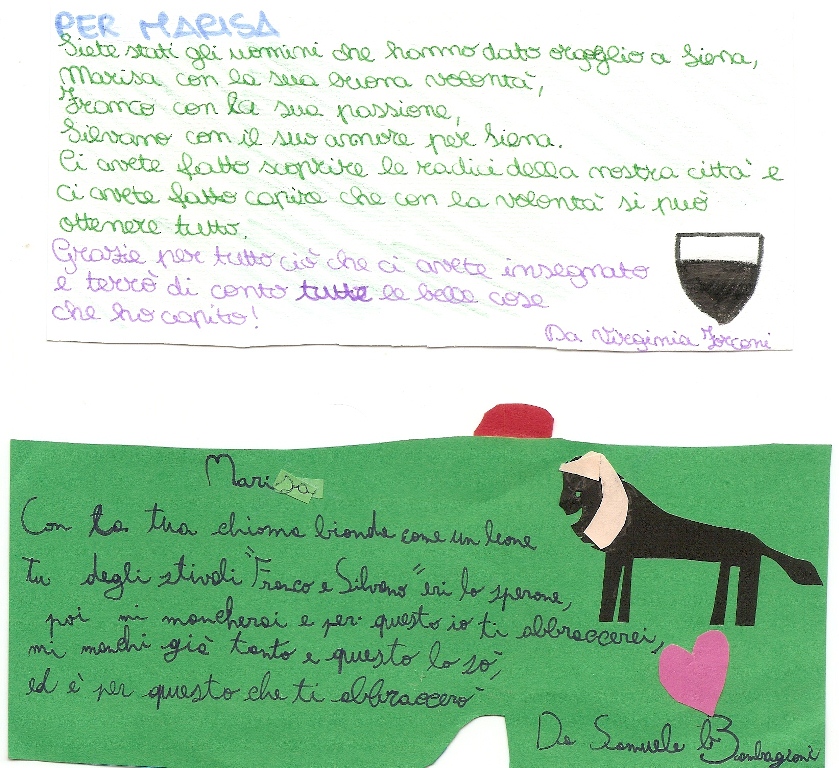 PER MARISA
Siete stati gli uomini che hanno dato orgoglio a Siena,
Marisa con la sua buona volontà,
Franco con la sua passione,
Silvano con il suo amore per Siena.
Ci avete fatto scoprire le radici della nostra città e
ci avete fatto capire che con la volontà si può
ottenere tutto.
Grazie per tutto ciò che ci avete insegnato
e terrò di conto tutte le belle cose
che ho capito!
Da Virginia Forconi
Marisa,
Con la tua chioma bionda come un leone
tu degli stivali "Franco e Silvano" eri lo sperone,
poi mi mancherai e per questo io ti abbraccerei,
mi manchi già tanto e questo lo sò,
ed è per questo che ti abbraccerò
Da Samuele Bombagioni